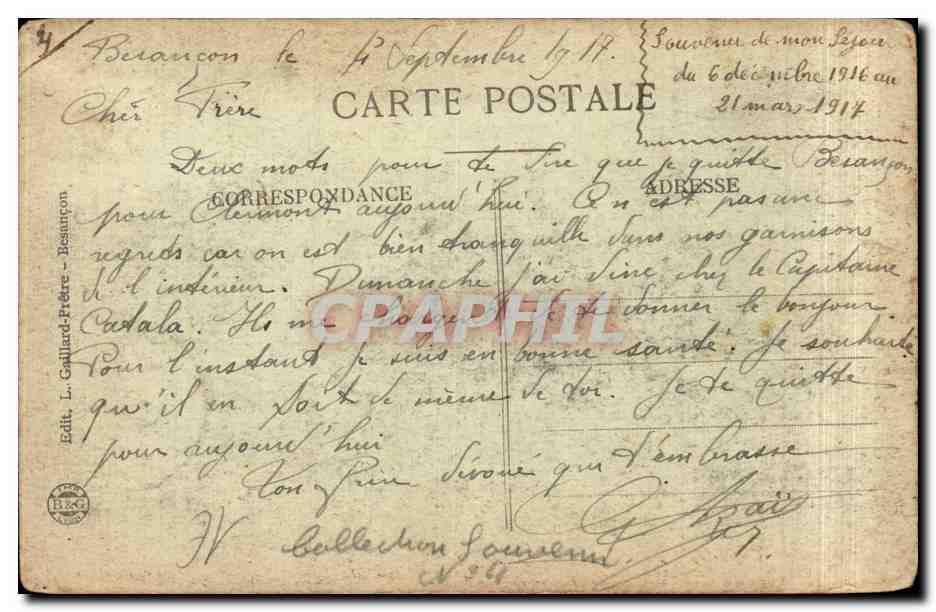 4
Besançon le 4 Septembre 1917.
Souvenir de mon Sejour
du 6 décembre 1916 au
21 mars 1917
Chèr Frère
CARTE POSTALE
Deux mots pour te dire que je quitte Besançon
CORRESPONDANCE
ADRESSE
pour Clermont aujourd'hui. Ce n'est pas sans
regrets car on est bien tranquille dans nos garnisons
de l'intérieur. Dimanche j'ai diné chez le Capitaine
Catala. Ils me de te donner le bonjour.
CPAPHIL
Pour l'instant je suis en bonne santé. Je souhaite
qu'il en soit de même de toi. Je te quitte
pour aujourd'hui
Ton frère dévoué qui t'embrasse
Collection Souvenir
N° 4
Edit. L. Gaillard-Prêtre - Besançon
B&G